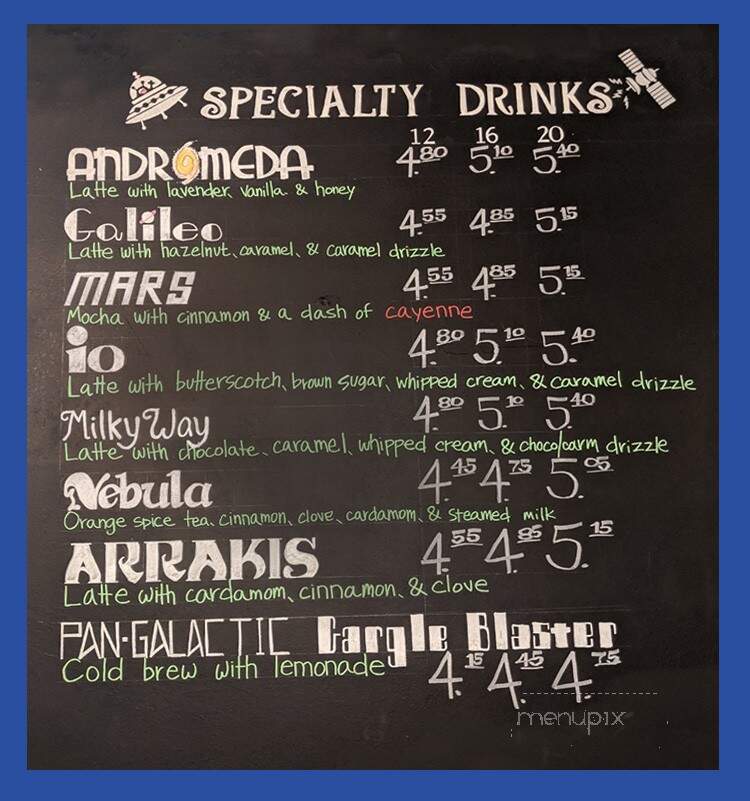 SPECIALTY DRINKS
12 16 20
ANDROMEDA 4.80 5.10 5.40
Latte with lavender, vanilla & honey
Galileo 4.55 4.85 5.15
Latte with hazelnut, caramel, & caramel drizzle
MARS 4.55 4.85 5.15
Mocha with cinnamon & a dash of cayenne
io 4.80 5.10 5.40
Latte with butterscotch, brown sugar, whipped cream, & caramel drizzle
Milky Way 4.80 5.10 5.40
Latte with chocolate, caramel, whipped cream, & choco/carm drizzle
Nebula 4.45 4.75 5.05
Orange spice tea, cinnamon, clove, cardamom, & steamed milk
ARRAKIS 4.55 4.85 5.15
Latte with cardamom, cinnamon, & clove
PAN-GALACTIC Gargle Blaster
Cold brew with lemonade 4.15 4.45 4.75
menupix